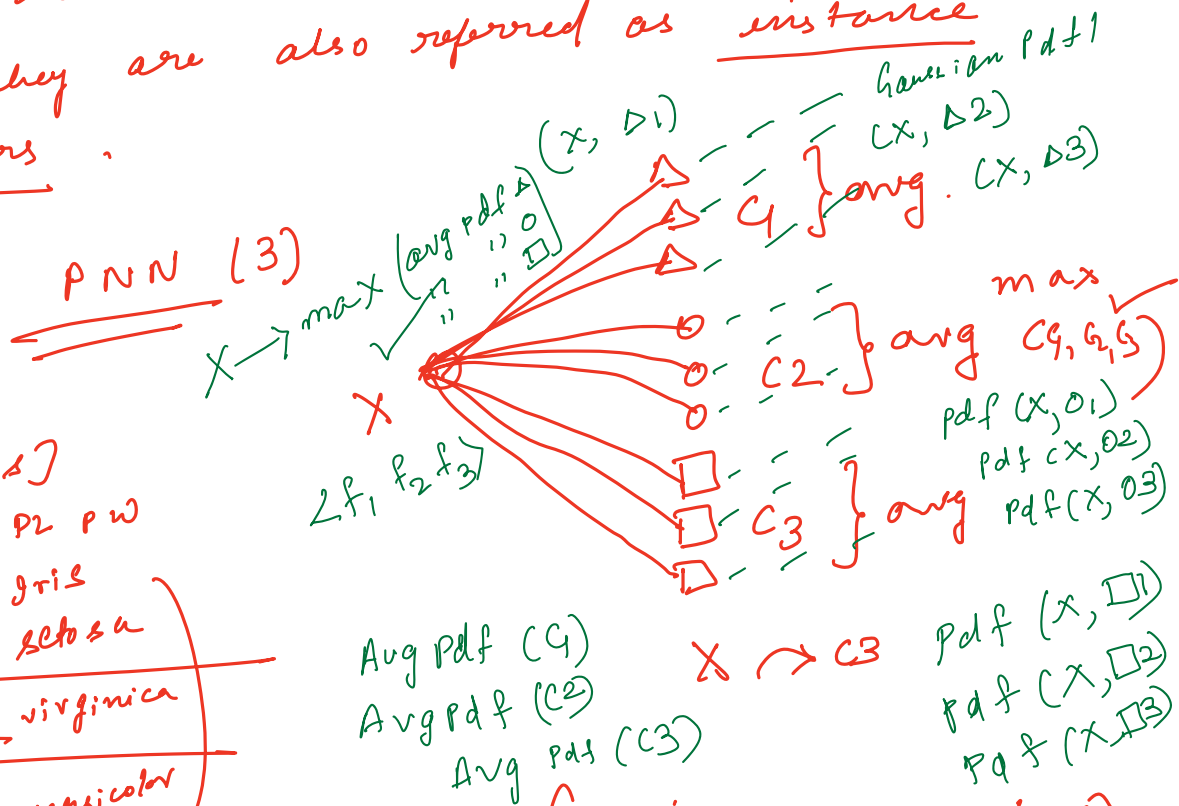 they are also referred as instance
rs .
PNN (3)
X → max (avg pdf △
,, ○
,, □)
(X, △1)
Gaussian Pdf 1
(X, △2)
(X, △3)
C1 } avg.
max
C2 } avg (C1, C2, C3)
X
<f1 f2 f3>
pdf (X, O1)
pdf (X, O2)
pdf (X, O3)
C3 } avg
s]
P2 PW
Iris
setosa
virginica
Avg pdf (C1)
Avg pdf (C2)
Avg pdf (C3)
X → C3
Pdf (X, □1)
pdf (X, □2)
Pdf (X, □3)